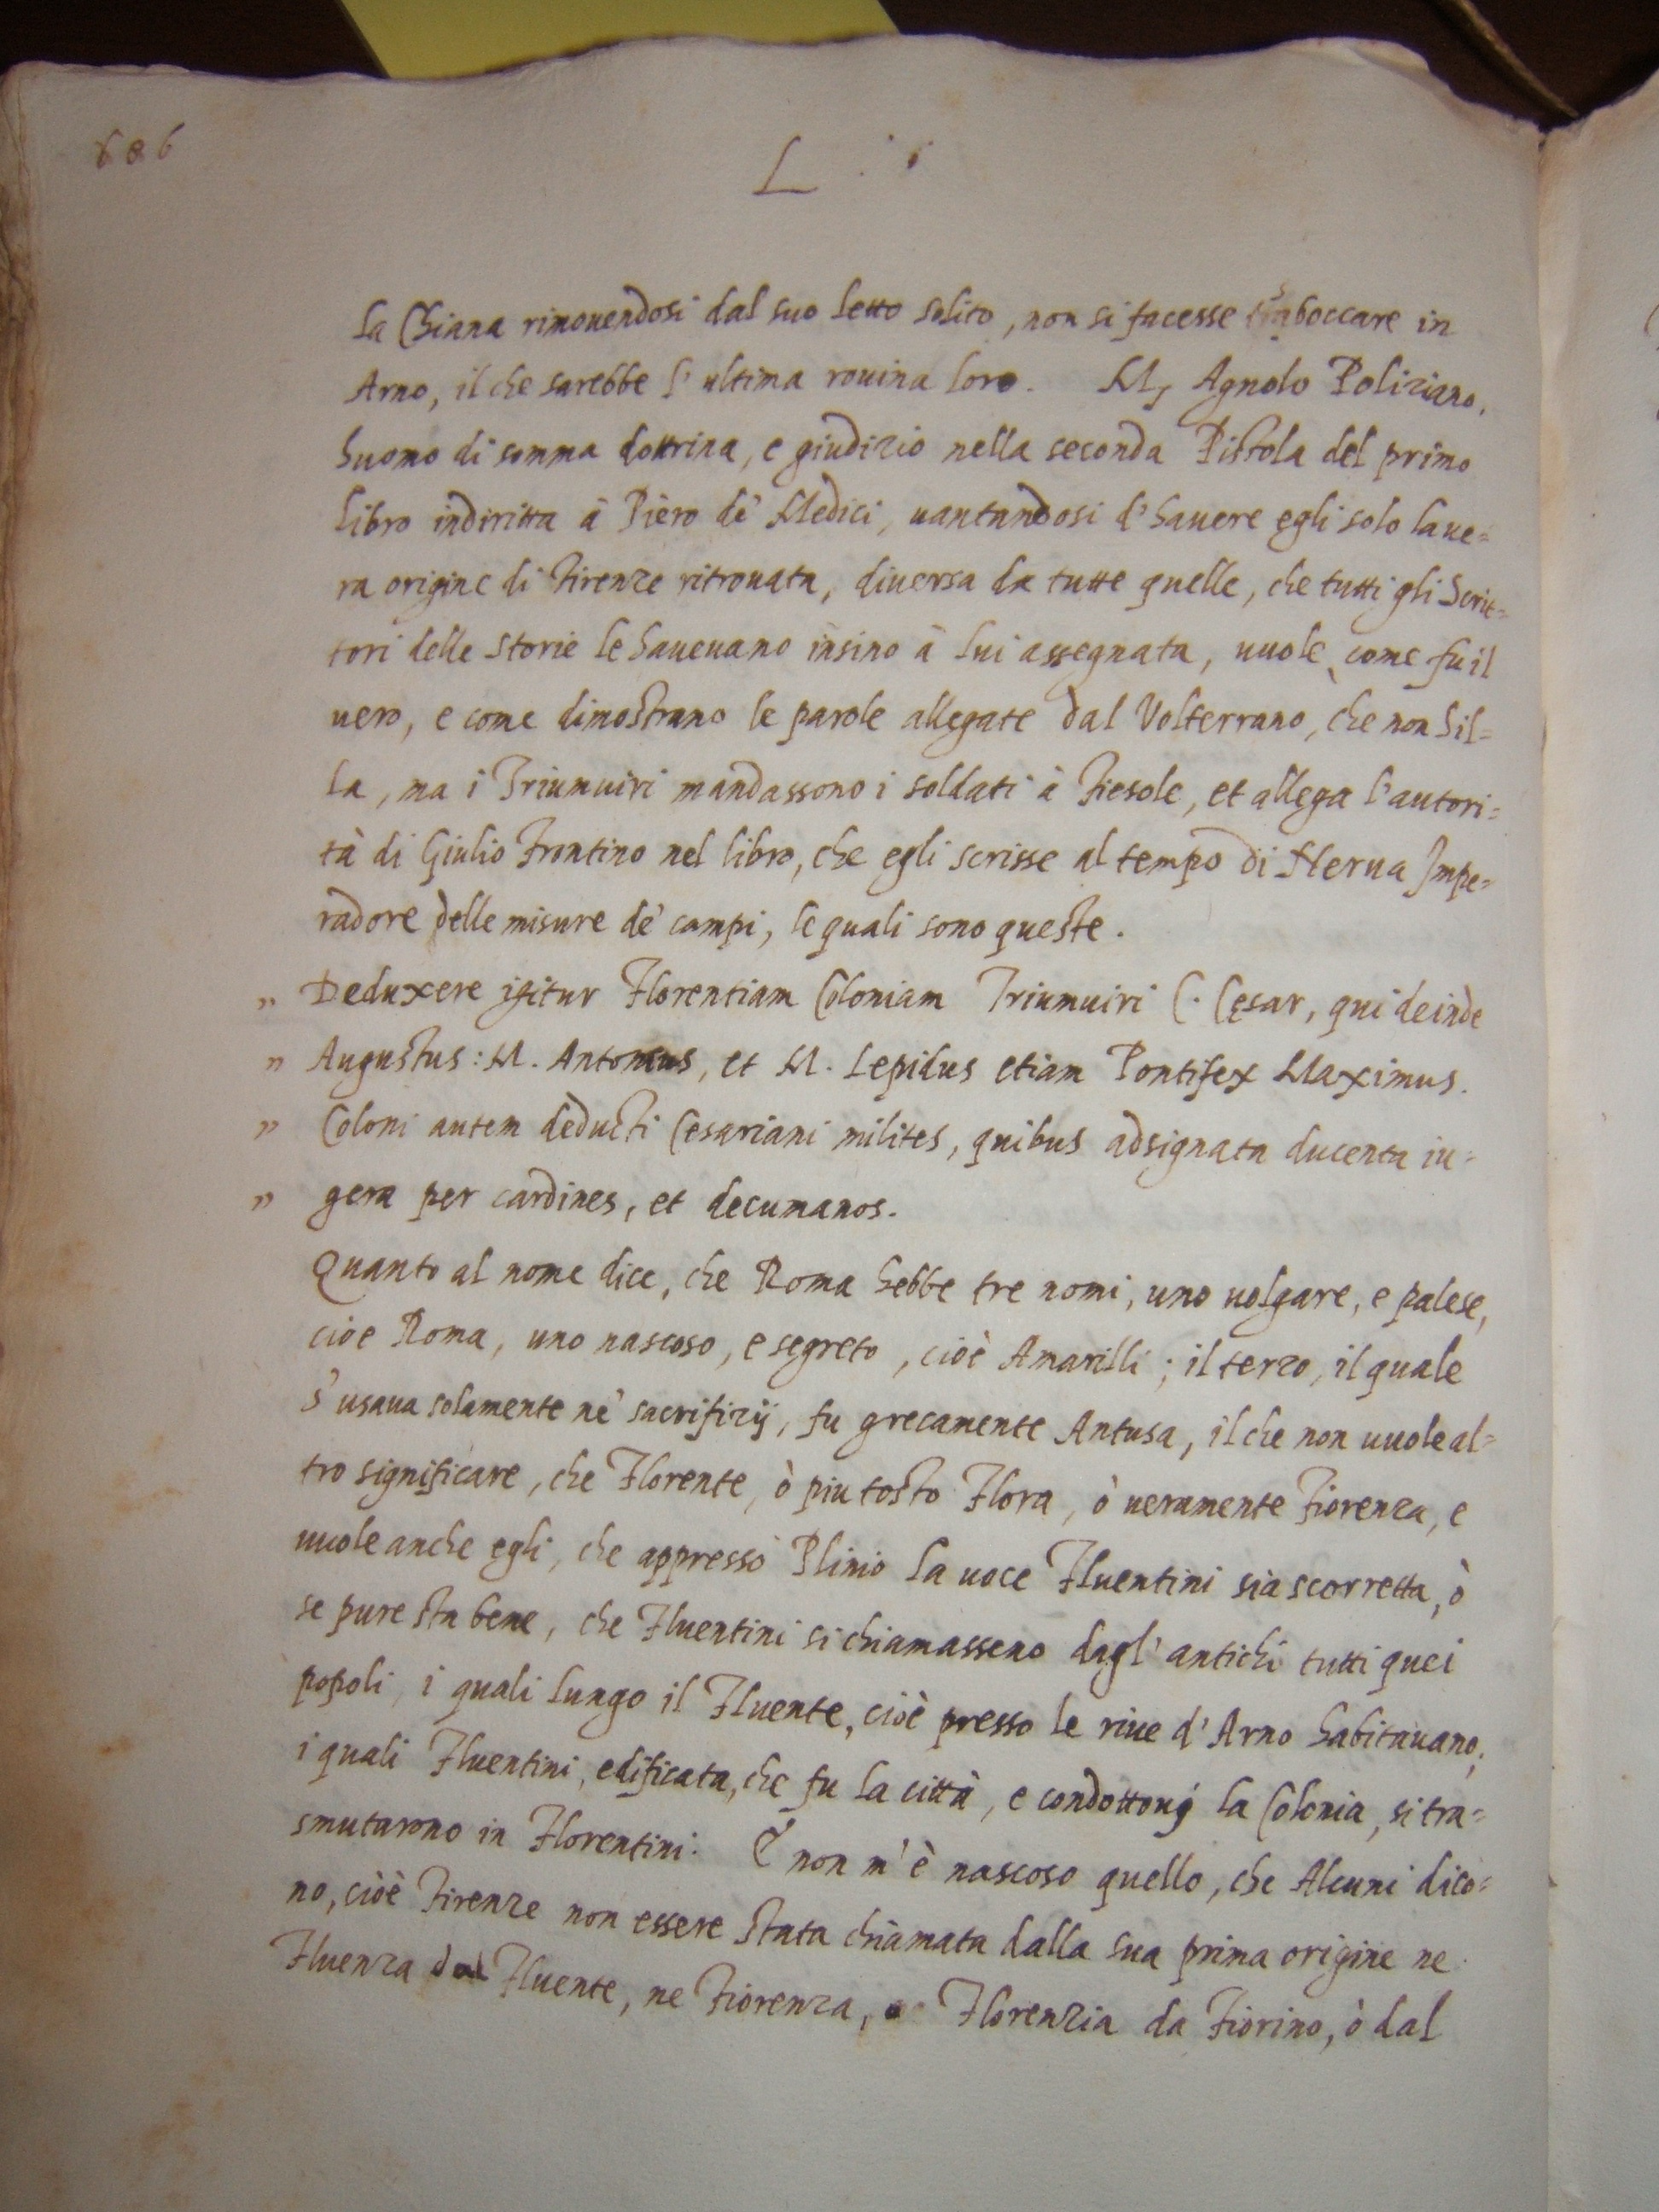 686
L.
la Chiana rimouendosi dal suo letto solito, non si facesse traboccare in
Arno, il che sarebbe l'ultima rouina loro. M. Agnolo Poliziano,
huomo di somma dottrina, e giudizio nella seconda Pistola del primo
libro indiritta à Piero de' Medici, uantandosi d'hauere egli solo la ue=
ra origine di Firenze ritrouata, diuersa da tutte quelle, che tutti gli Scrit=
tori delle storie le haueuano insino à lui assegnata, uuole, come fu il
uero, e come dimostrano le parole allegate dal Volterrano, che non Sil=
la, ma i Triumuiri mandassono i soldati à Fiesole, et allega l'autori=
tà di Giulio Frontino nel libro, che egli scrisse al tempo di Nerua Impe=
radore delle misure de' campi, le quali sono queste.
" Deduxere igitur Florentiam Coloniam Triumuiri C. Cęsar, qui deinde
" Augustus: M. Antonius, et M. Lepidus etiam Pontifex Maximus.
" Coloni autem deducti Cesariani milites, quibus adsignata ducenta iu=
" gera per cardines, et decumanos.
Quanto al nome dice, che Roma hebbe tre nomi, uno uolgare, e palese,
cioe Roma, uno nascoso, e segreto, cioè Amarilli; il terzo, il quale
s'usaua solamente ne' sacrifizij, fu grecamente Antusa, il che non uuole al=
tro significare, che Florente, ò piu tosto Flora, ò ueramente Fiorenza, e
uuole anche egli, che appresso Plinio la uoce Fluentini sia scorretta, ò
se pure sta bene, che Fluentini si chiamasseno dagl'antichi tutti quei
popoli, i quali lungo il Fluente, cioè presso le riue d'Arno habitauano,
i quali Fluentini, edificata, che fu la città, e condottoui la Colonia, si tra=
smutarono in Florentini. E non m'è nascoso quello, che Alcuni dico=
no, cioè Firenze non essere stata chiamata dalla sua prima origine ne
Fluenza dal Fluente, ne Fiorenza, o Florenzia da Fiorino, ò dal